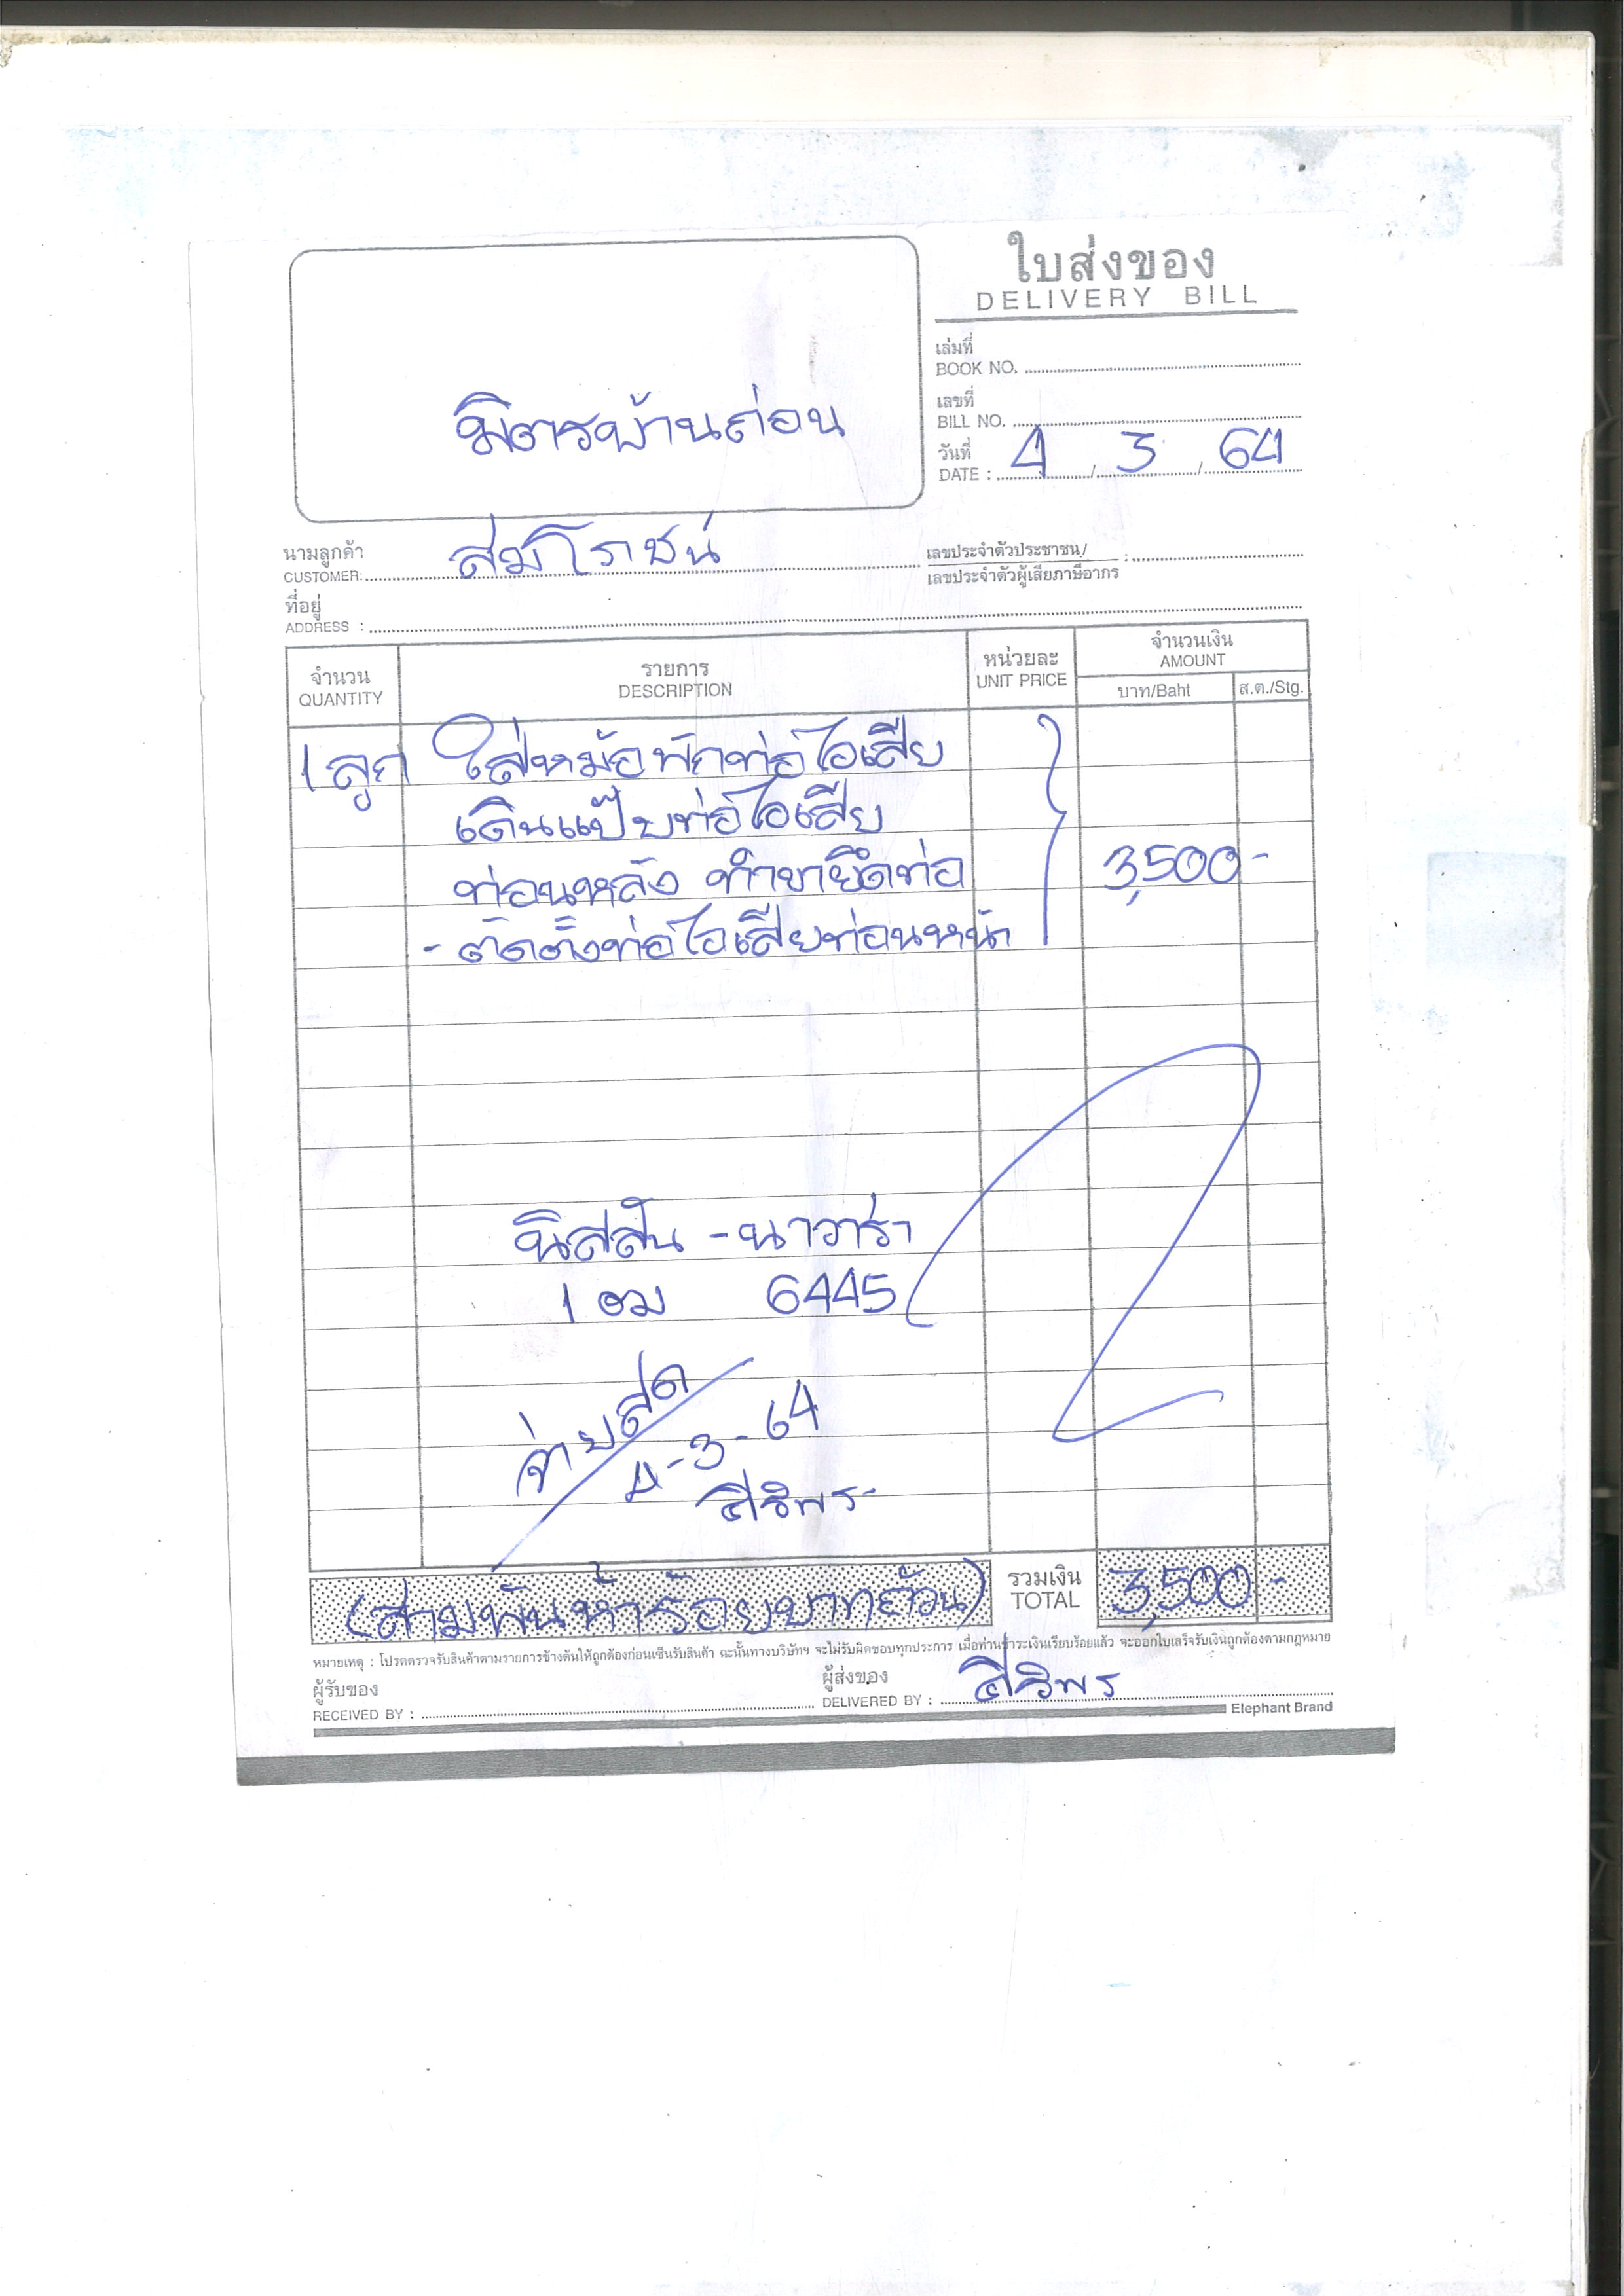 ใบส่งของ
DELIVERY BILL
เล่มที่
BOOK NO.
เลขที่
BILL NO.
มิตรบ้านถ่อน
วันที่
DATE : 4 / 3 / 64
นามลูกค้า
CUSTOMER: สมโรชน์
เลขประจำตัวประชาชน/
เลขประจำตัวผู้เสียภาษีอากร :
ที่อยู่
ADDRESS :
จำนวน รายการ หน่วยละ จำนวนเงิน
QUANTITY DESCRIPTION UNIT PRICE AMOUNT
บาท/Baht ส.ต./Stg.
1 ลูก ใส่หม้อพักท่อไอเสีย
เดินแป๊บท่อไอเสีย
ท่อนหลัง ทำขายึดท่อ 3,500-
- ติดตั้งท่อไอเสียท่อนหน้า
นิสสัน - นาวาร่า
1 ฒม 6445
จ่ายสด
4-3-64
ศิริพร
(สามพันห้าร้อยบาทถ้วน) รวมเงิน 3,500-
TOTAL
หมายเหตุ : โปรดตรวจรับสินค้าตามรายการข้างต้นให้ถูกต้องก่อนเซ็นรับสินค้า ฉะนั้นทางบริษัทฯ จะไม่รับผิดชอบทุกประการ เมื่อท่านชำระเงินเรียบร้อยแล้ว จะออกใบเสร็จรับเงินถูกต้องตามกฎหมาย
ผู้รับของ ผู้ส่งของ
RECEIVED BY : DELIVERED BY : ศิริพร
Elephant Brand